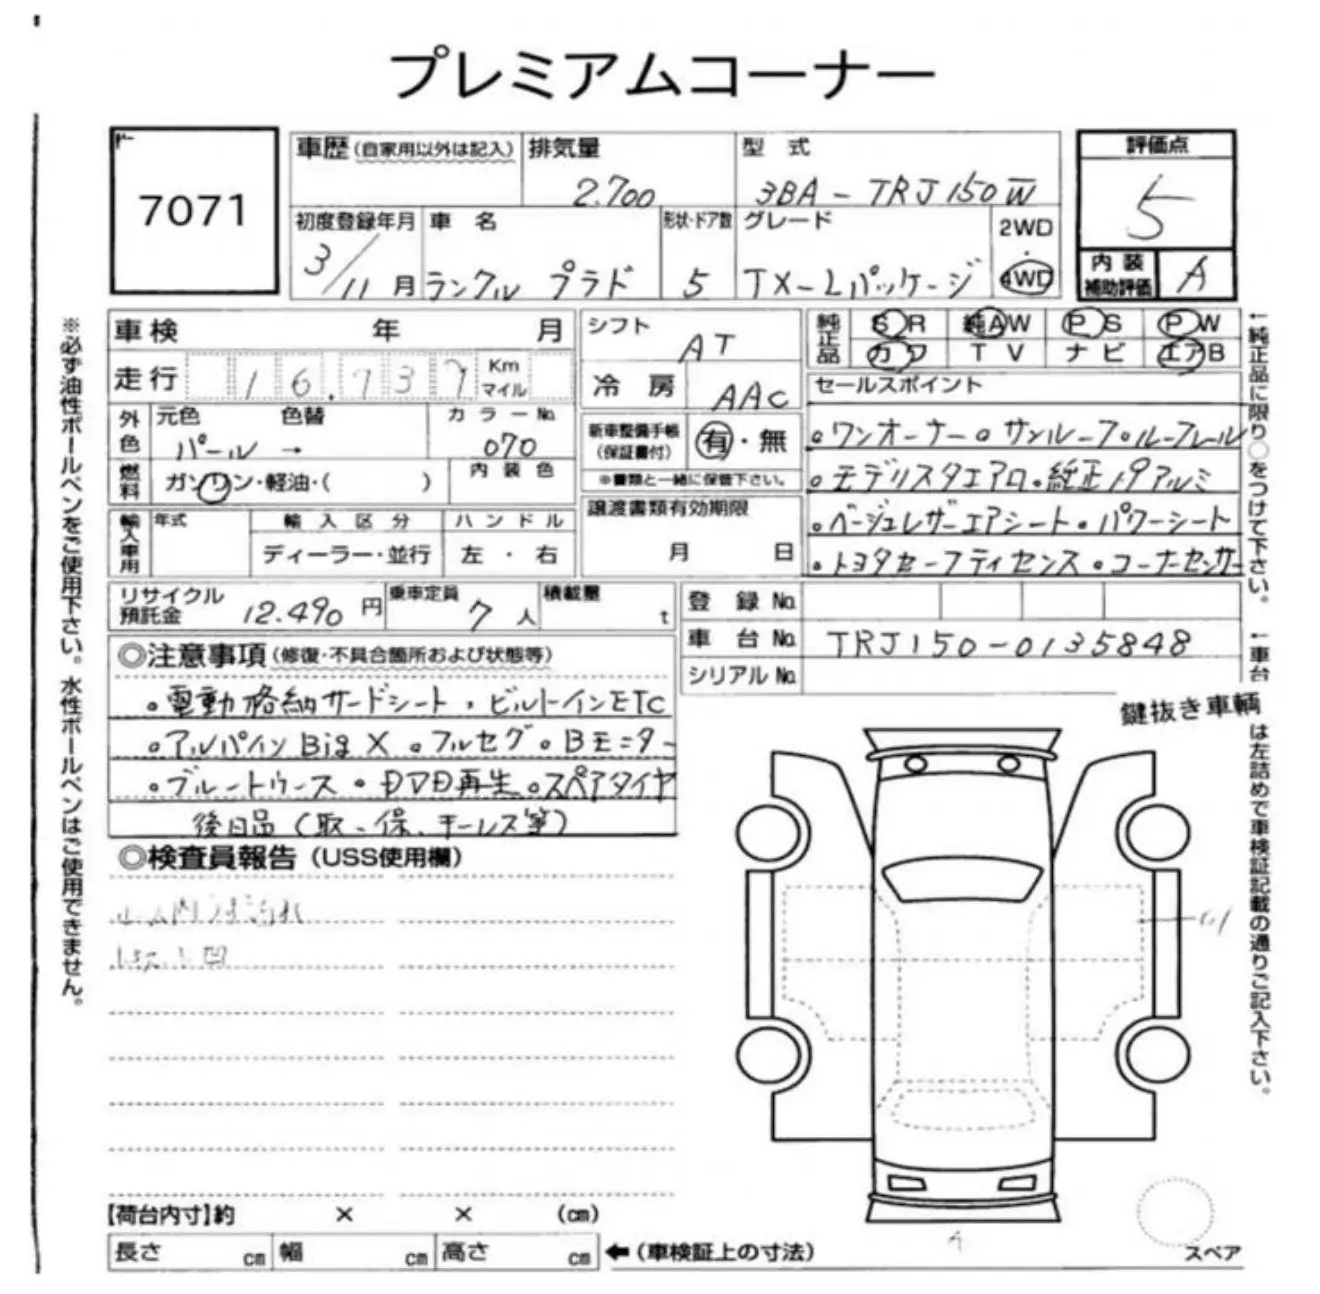 プレミアムコーナー
7071
車歴(自家用以外は記入) 排気量 型式 評価点
2.700 3BA-TRJ150W 5
初度登録年月 車名 形状・ドア数 グレード 2WD・4WD
3/11月 ランクル プラド 5 TX-Lパッケージ
内装補助評価 A
車検 年 月 シフト AT 純正品 SR 純AW PS PW
カワ TV ナビ エアB
走行 16.737 Km マイル 冷房 AAC
セールスポイント
外色 元色 色替 カラーNo.
パール → 070
新車整備手帳(保証書付) 有・無
※書類と一緒に保管下さい。
燃料 ガソリン・軽油・( ) 内装色
輸入車用 年式 輸入区分 ハンドル
ディーラー・並行 左・右
譲渡書類有効期限
月 日
。ワンオーナー。サンルーフ。ルーフレール
。モデリスタエアロ。純正19アルミ
。ベージュレザーエアシート。パワーシート
。トヨタセーフティセンス。コーナーセンサー
リサイクル預託金 12.490円 乗車定員 7人 積載量 t
登録No.
車台No. TRJ150-0135848
シリアルNo.
◎注意事項(修復・不具合箇所および状態等)
。電動格納サードシート、ビルトインETC
。アルパインBigX 。フルセグ。Bモニター
。ブルートゥース。DVD再生。スペアタイヤ
後日品(取、保、キーレス等)
鍵抜き車輌
◎検査員報告(USS使用欄)
【荷台内寸】約 × × (cm)
長さ cm 幅 cm 高さ cm ←(車検証上の寸法)
A
スペア
※必ず油性ボールペンをご使用下さい。水性ボールペンはご使用できません。
←純正品に限り○をつけて下さい。
←車台
は左詰めで車検証記載の通りご記入下さい。